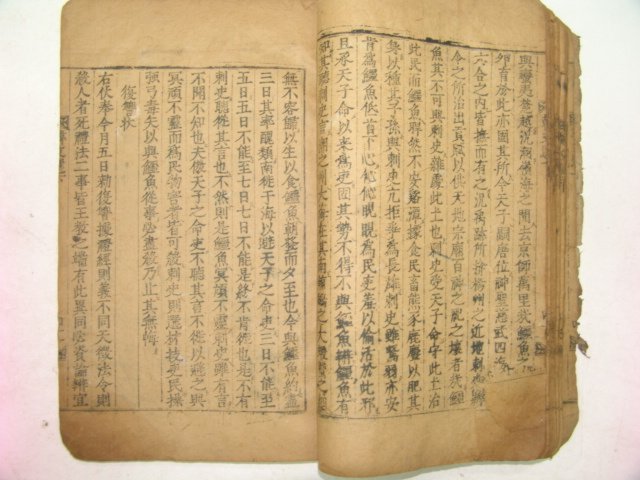 與蠻夷楚越況潮嶺海之間去京師萬里哉鱷魚之涵
卵育於此亦固其所今天子嗣唐位神聖慈武四海之外
六合之內皆撫而有之況禹跡所揜楊州之近地刺史縣
令之所治出貢賦以供天地宗廟百神之祀之壤者哉鱷
魚其不可與刺史雜處此土也刺史受天子命守此土治
此民而鱷魚睅然不安谿潭據食民畜熊豕鹿麞以肥其
身以種其子孫與刺史亢拒爭為長雄刺史雖駑弱亦安
肯為鱷魚低首下心伈伈睍睍為民吏羞以偷活於此邪
且承天子命以來為吏固其勢不得不與鱷魚辨鱷魚有
知其聽刺史言潮之州大海在其南鯨鵬之大蝦蟹之細
無不容歸以生以食鱷魚朝發而夕至也今與鱷魚約盡
三日其率醜類南徙于海以避天子之命吏三日不能至
五日五日不能至七日七日不能是終不肯徙也是不有
刺史聽從其言也不然則是鱷魚冥頑不靈刺史雖有言
不聞不知也夫傲天子之命吏不聽其言不徙以避之與
冥頑不靈而為民物害者皆可殺刺史則選材技吏民操
強弓毒矢以與鱷魚從事必盡殺乃止其無悔
復讎狀
右伏奉今月五日勑復讎據禮經則義不同天徵法令則
殺人者死禮法二事皆王教之端有此異同必資論辨宜